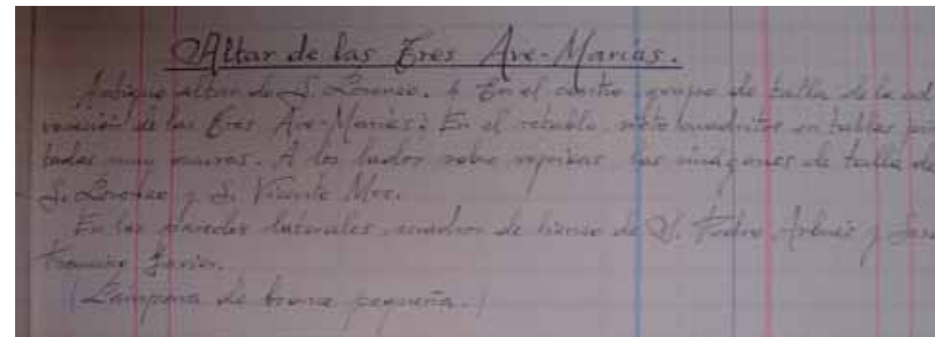 Altar de las Tres Ave-Marías.
Antiguo altar de S. Lorenzo. En el centro grupo de talla de la ad
vocación de las Tres Ave-Marías: En el retablo, siete cuadritos en tablas pin
tadas muy oscuras. A los lados sobre repisas las imágenes de talla de
S. Lorenzo y S. Vicente Mrs.
En las paredes laterales, cuadros de lienzo de S. Pedro Arbués y San
Francisco Javier.
(Lámpara de bronce pequeña.)